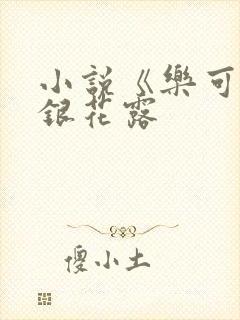 小説《樂可
銀花露
傻小土